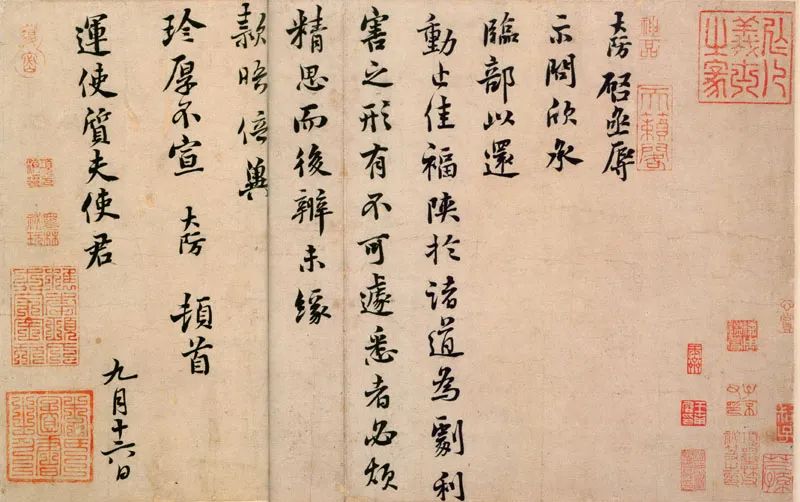 神品
天籟閣
大防啓亟辱
示問欣承
臨部以還
動止佳福陝於諸道為劇利
害之形有不可遽悉者必煩
精思而後辨未緣
款晤倍冀
珍厚不宣 大防 頓首
運使質夫使君
九月十六日